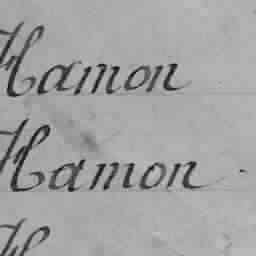 Hamon
Hamon
H